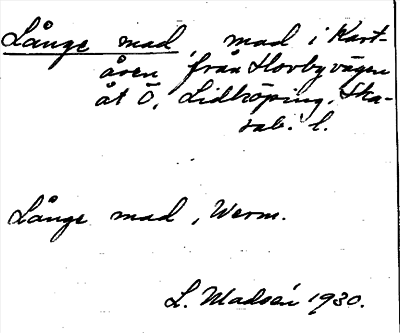 Långe mad, mad i Kart-
åsen från Hovbyvägen
åt Ö, Lidköping. Ska-
rab. l.
Långe mad, Werm.
L. Madsén 1930.